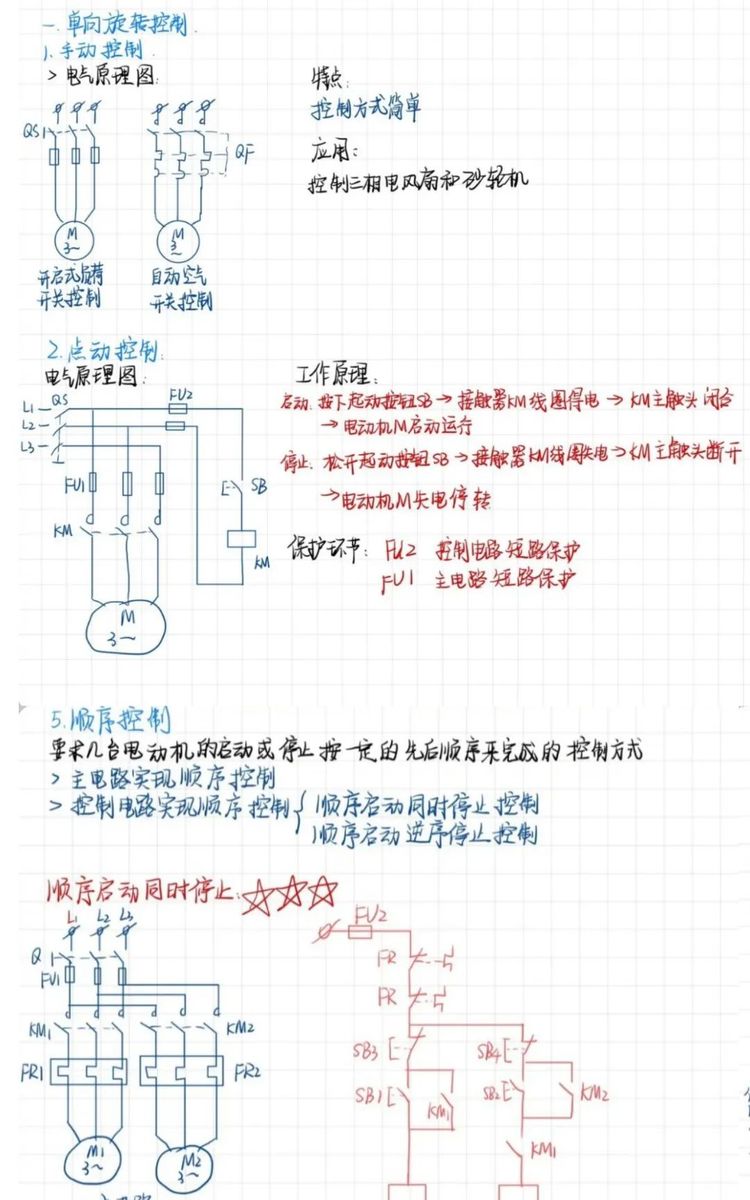 一.单向旋转控制.
1.手动控制.
>电气原理图:
特点:
控制方式简单
QS
QF
应用:
控制三相电风扇和砂轮机
M
3~
M
3~
开启式负荷
开关控制
自动空气
开关控制
2.点动控制:
电气原理图:
工作原理:
启动:按下起动按钮SB→接触器KM线圈得电→KM主触头闭合
→电动机M启动运行
停止:松开起动按钮SB→接触器KM线圈失电→KM主触头断开
→电动机M失电停转
保护环节: FU2 控制电路短路保护
FU1 主电路短路保护
L1 QS
L2
L3
FU2
FU1
SB
KM
KM
M
3~
5.顺序控制
要求几台电动机的启动或停止按一定的先后顺序来完成的控制方式
>主电路实现顺序控制
>控制电路实现顺序控制{顺序启动同时停止控制
顺序启动逆序停止控制
顺序启动同时停止:
L1 L2 L3
Q
FU1
KM1
KM2
FR1
FR2
M1
3~
M2
3~
FU2
FR
FR
SB3
SB4
SB1
KM1
SB2
KM2
KM1